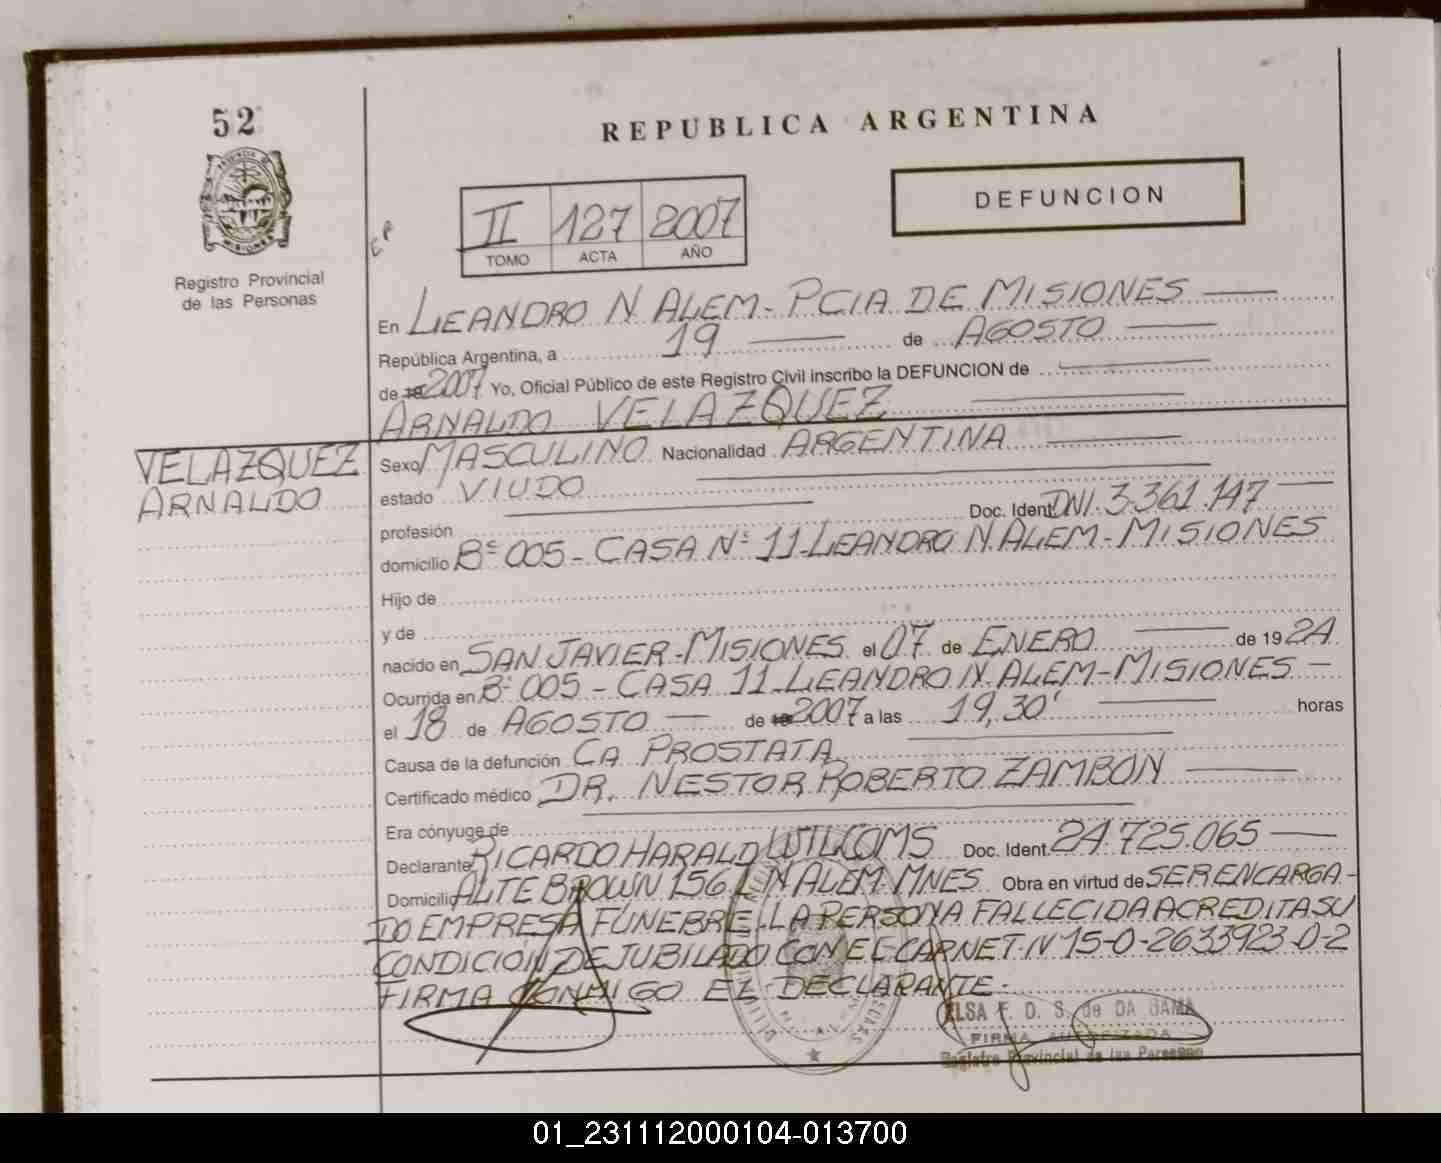 52
REPUBLICA ARGENTINA
DEFUNCION
II 127 2007
TOMO ACTA AÑO
PROVINCIA DE
MISIONES
Registro Provincial
de las Personas
En LEANDRO N ALEM - PCIA DE MISIONES
República Argentina, a 19 de AGOSTO
de 19 2007 Yo, Oficial Público de este Registro Civil inscribo la DEFUNCION de
ARNALDO VELAZQUEZ
VELAZQUEZ
ARNALDO
Sexo MASCULINO Nacionalidad ARGENTINA
estado VIUDO
profesión Doc. Ident. DNI. 3.361.147
domicilio Bº 005 - CASA Nº 11 - LEANDRO N. ALEM - MISIONES
Hijo de
y de
nacido en SAN JAVIER - MISIONES el 07 de ENERO de 1924
Ocurrida en Bº 005 - CASA 11 - LEANDRO N. ALEM - MISIONES -
el 18 de AGOSTO de 19 2007 a las 19,30' horas
Causa de la defunción CA PROSTATA
Certificado médico DR. NESTOR ROBERTO ZAMBON
Era cónyuge de
Declarante RICARDO HARALD WILCOMS Doc. Ident. 24.725.065
Domicilio ALTE BROWN 156 L N ALEM MNES Obra en virtud de SER ENCARGA-
DO EMPRESA FUNEBRE. LA PERSONA FALLECIDA ACREDITA SU
CONDICIÓN DE JUBILADO CON EL CARNET Nº 15-0-2633923-0-2
FIRMA CONMIGO EL DECLARANTE.
ELSA F. D. S. de DA GAMA
FIRMA AUTORIZADA
Registro Provincial de las Personas
01_231112000104-013700